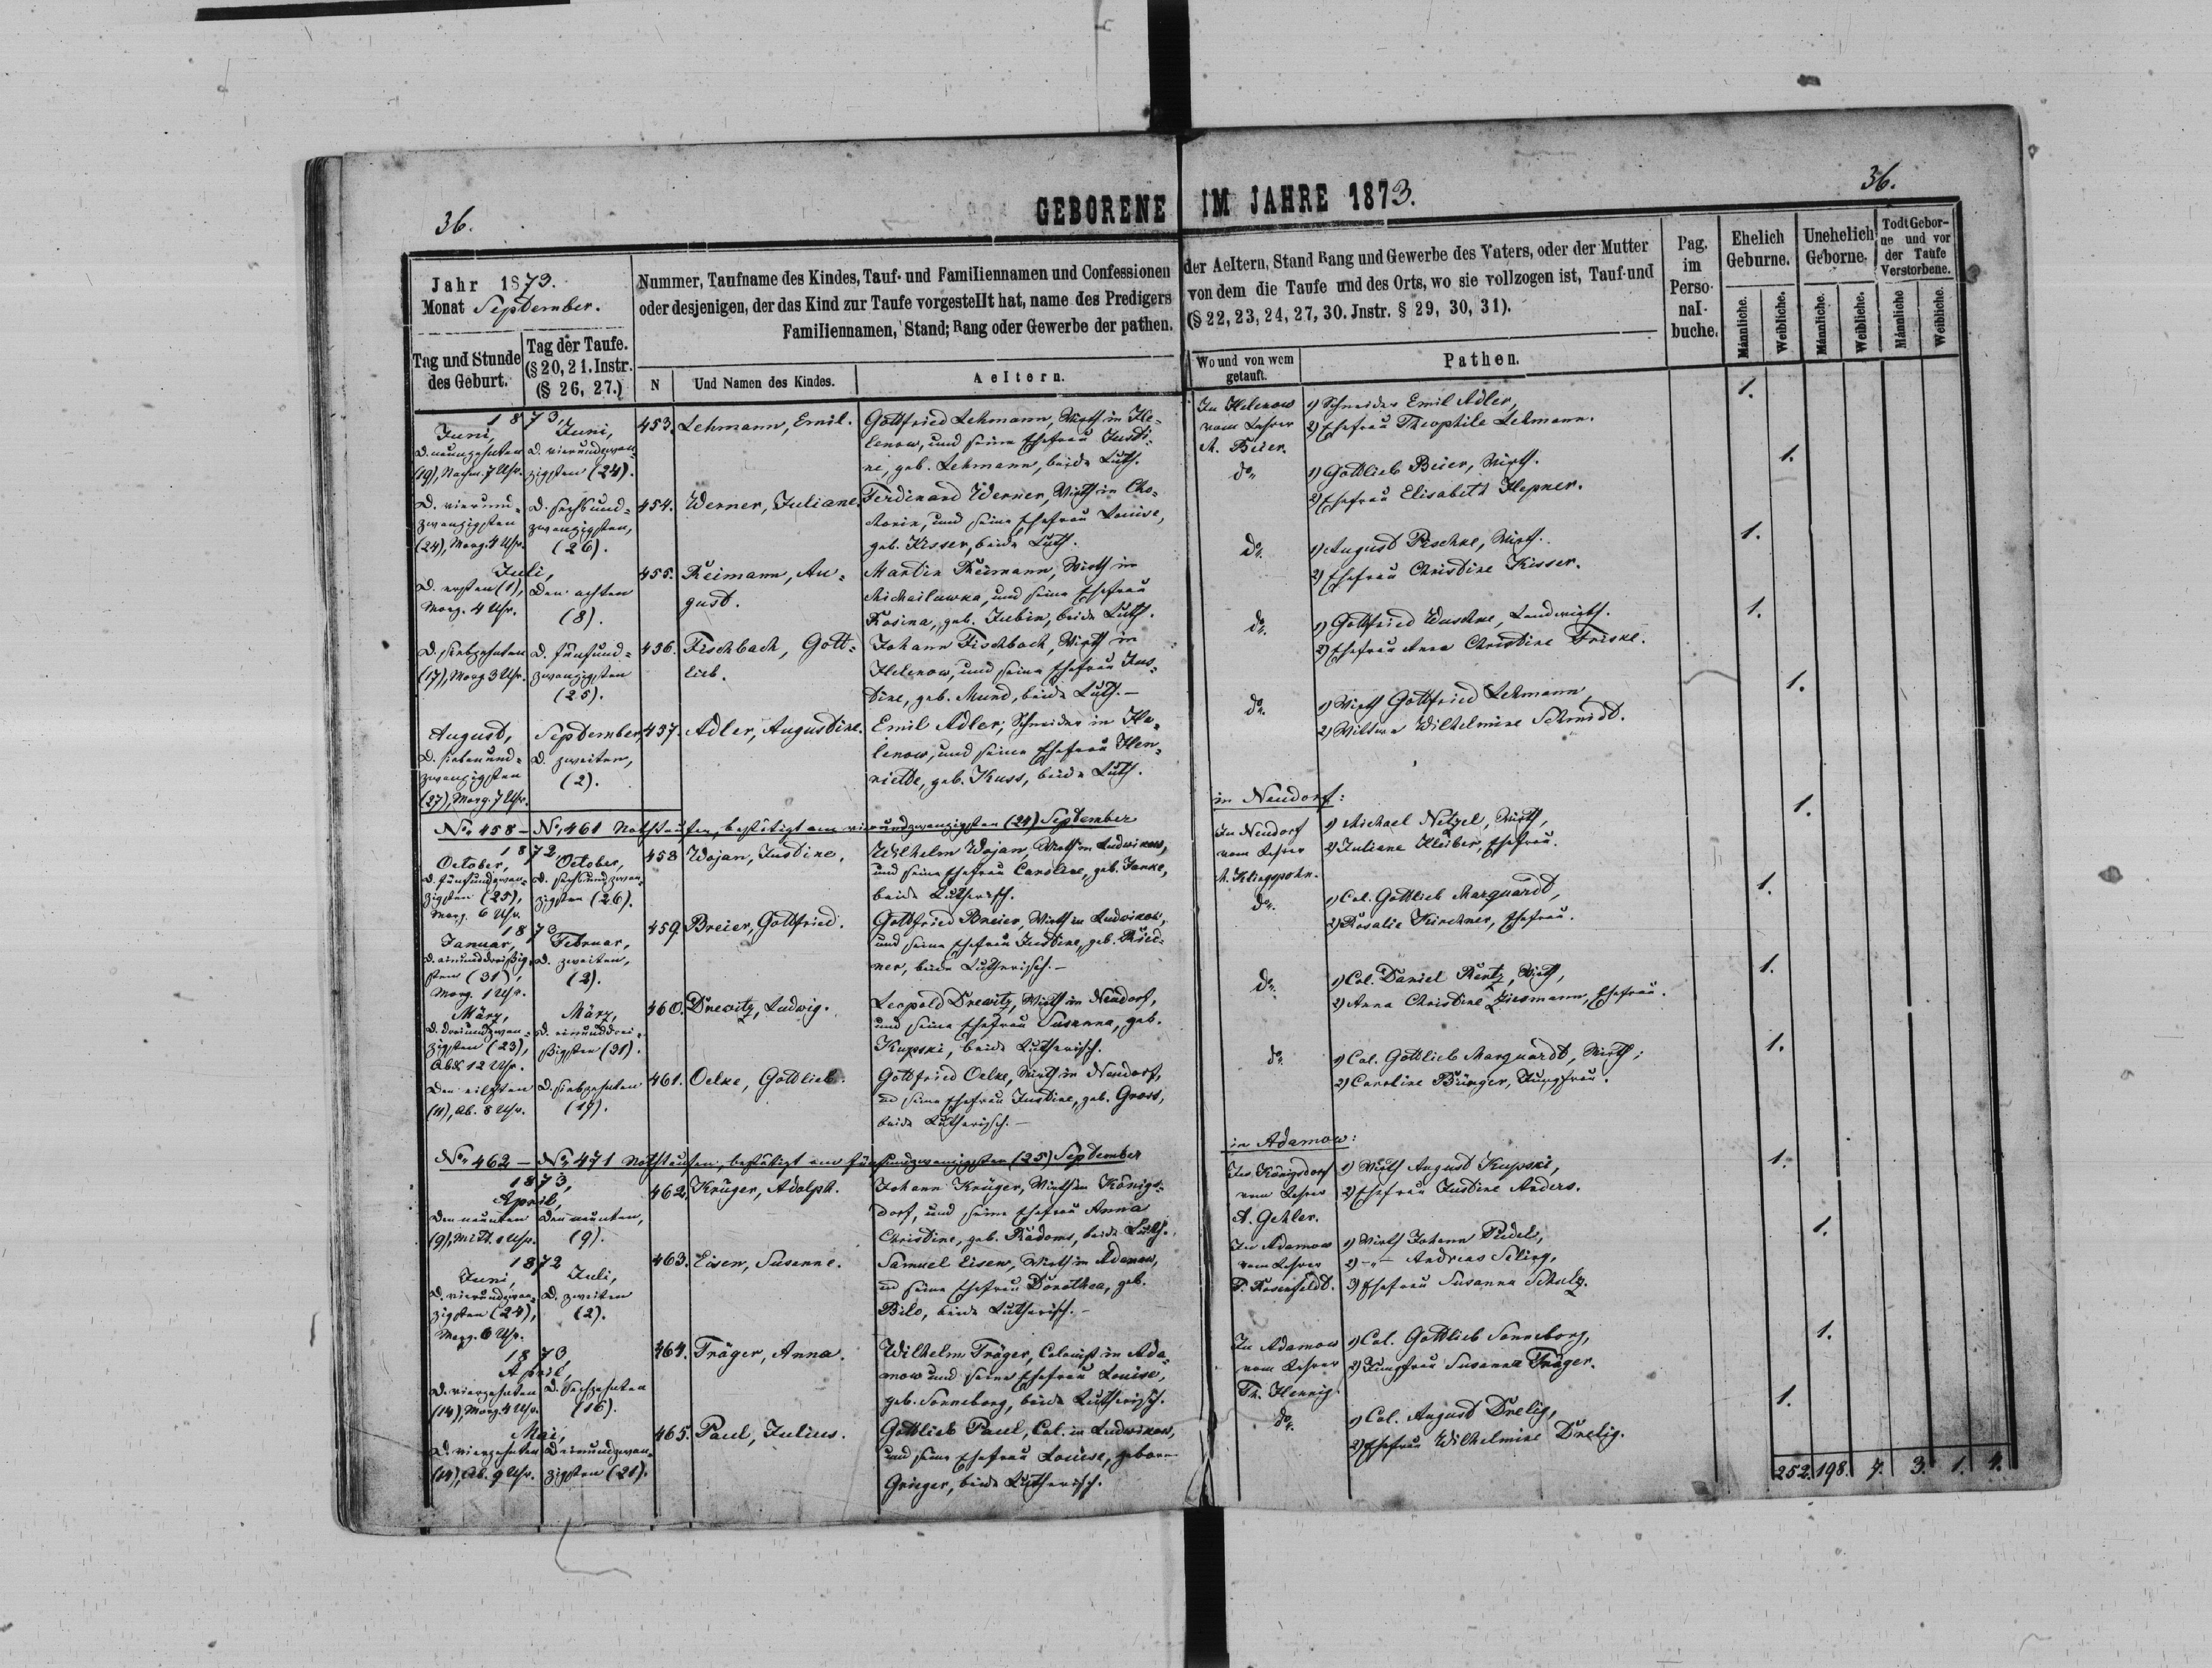 36.
GEBORENE IM JAHRE 1873.
36.
Jahr 1873.
Monat September.
Tag und Stunde des Geburt.
Tag der Taufe.
(§ 20, 21. Instr.
(§ 26, 27.)
Nummer, Taufname des Kindes, Tauf- und Familiennamen und Confessionen
oder desjenigen, der das Kind zur Taufe vorgestellt hat, name des Predigers
Familiennamen, Stand; Rang oder Gewerbe der pathen.
N
Und Namen des Kindes.
Aeltern.
der Aeltern, Stand Rang und Gewerbe des Vaters, oder der Mutter
von dem die Taufe und des Orts, wo sie vollzogen ist, Tauf-und
(§ 22, 23, 24, 27, 30. Jnstr. § 29, 30, 31).
Wo und von wem
getauft.
Pathen.
Pag.
im
Perso-
nal-
buche.
Ehelich
Geburne.
Unehelich
Geborne.
Todt Gebor-
ne und vor
der Taufe
Verstorbene.
Männliche.
Weibliche.
Männliche.
Weibliche.
Männliche
Weibliche.
1873,
Juni,
D. neunzehnten
(19), Nachm. 7 Uhr.
Juni,
D. vierundzwan-
zigsten (24).
453.
Lehmann, Emil.
Gottfried Lehmann, Wirth in He-
lenow, und seine Ehefrau Justi-
ne, geb. Lehmann, beide Luth.
In Helenow
vom Lehrer
A. Beier.
1) Schneider Emil Adler,
2) Ehefrau Theophile Lehmann.
1.
D. vierund-
zwanzigsten
(24), Morg. 4 Uhr.
D. sechsund-
zwanzigsten,
(26).
454.
Werner, Juliane.
Ferdinand Werner, Wirth in Cho-
und seine Ehefrau Louise,
geb. Kisser, beide Luth.
do.
1) Gottlieb Beier, Wirth.
2) Ehefrau Elisabeth Hepner.
1.
Juli,
D. ersten (1),
Morg. 4 Uhr.
Den achten
(8).
455.
Reimann, Au-
gust.
Martin Reimann, Wirth in
Michailuwka, und seine Ehefrau
Rosina, geb. Jubin, beide Luth.
do.
1) August Peschke, Wirth.
2) Ehefrau Christine Kisser.
1.
D. siebzehnten
(17), Morg. 3 Uhr.
D. fünfund-
zwanzigsten
(25).
456.
Fischbach, Gott-
lieb.
Johann Fischbach, Wirth in
Helenow, und seine Ehefrau Jus-
tine, geb. Mund, beide Luth. –
do.
1) Gottfried Waschke, Landwirth.
2) Ehefrau Anna Christine Friske.
1.
August,
D. siebenund-
zwanzigsten
(27), Morg. 7 Uhr.
September,
D. zweiten,
(2).
457.
Adler, Augustine.
Emil Adler, Schneider in He-
lenow, und seine Ehefrau Hen-
riette, geb. Kuss, beide Luth.
do.
1) Wirth Gottfried Lehmann,
2) Wittwe Wilhelmine Schmidt.
1.
No. 458 – No. 461 Nothtaufen, bestätigt am vierundzwanzigsten (24) September
in Neudorf:
1872,
October,
D. fünfundzwan-
zigsten (25),
Morg. 6 Uhr.
October,
D. sechsundzwan-
zigsten (26).
458
Wojan, Justine.
Wilhelm Wojan, Wirth in Ludwikow,
und seine Ehefrau Caroline, geb. Janke,
beide Lutherisch.
In Neudorf
vom Lehrer
A. Klingspohn.
1) Michael Netzel, Wirth,
2) Juliane Kleiber, Ehefrau.
1.
1873
Januar,
D. einunddreißig-
sten (31),
Morg. 1 Uhr.
Februar,
D. zweiten,
(2).
459
Breier, Gottfried.
Gottfried Breier, Wirth in Ludwikow,
und seine Ehefrau Justine, geb. Rüed-
ner, beide Lutherisch. –
do.
1) Col. Gottlieb Marquardt,
2) Rosalie Kirschner, Ehefrau.
1.
März,
D. dreiundzwan-
zigsten (23),
Abds. 12 Uhr.
März,
D. einunddrei-
ßigsten (31).
460.
Drewitz, Ludwig.
Leopold Drewitz, Wirth in Neudorf,
und seine Ehefrau Susanna, geb.
Kupski, beide Lutherisch.
do.
1) Col. Daniel Rentz, Wirth,
2) Anna Christine Ziesmann, Ehefrau.
1.
Den eilften
(11), Ab. 8 Uhr.
D. siebzehnten
(17).
461.
Oelke, Gottlieb.
Gottfried Oelke, Wirth in Neudorf,
und seine Ehefrau Justine, geb. Gross,
beide Lutherisch. –
do.
1) Col. Gottlieb Marquardt, Wirth;
2) Caroline Bürger, Jungfrau.
1.
No. 462 – No. 471 Nothtaufen, bestätigt am fünfundzwanzigsten (25) September
in Adamow:
1873,
April,
Den neunten
(9), Mitt. 1 Uhr.
Den neunten,
(9).
462.
Krüger, Adolph.
Johann Krüger, Wirth in Königs-
dorf, und seine Ehefrau Anna
Christine, geb. Radoms, beide Luth.
In Königsdorf
vom Lehrer
A. Gehler.
1) Wirth August Kupski,
2) Ehefrau Justine Anders.
1.
1872
Juni,
D. vierundzwan-
zigsten (24),
Morg. 6 Uhr.
Juli,
D. zweiten
(2).
463.
Eisen, Susanne.
Samuel Eisen, Wirth in Adamow,
und seine Ehefrau Dorothea, geb.
Bilo, beide Lutherisch. –
In Adamow
vom Lehrer
P. Rosenfeldt.
1) Wirth Johann Riedel,
2) –"– Andreas Selieg,
3) Ehefrau Susanna Schulz.
1.
1873
April,
D. vierzehnten
(14), Morg. 4 Uhr.
D. Sechzehnten
(16).
464.
Träger, Anna.
Wilhelm Träger, Colonist in Ada-
mow und seine Ehefrau Louise,
geb. Sonneborg, beide Lutherisch.
In Adamow
vom Lehrer
Th. Hennig.
1) Col. Gottlieb Sonneborg,
2) Jungfrau Susanna Träger.
1.
Mai,
D. vierzehnten
(14), Ab. 9 Uhr.
D. einundzwan-
zigsten (21).
465.
Paul, Julius.
Gottlieb Paul, Col. in Ludwikow,
und seine Ehefrau Louise, geboren
Grieger, beide Lutherisch.
do.
1) Col. August Drelig,
2) Ehefrau Wilhelmine Drelig.
1.
252. 198. 7. 3. 1. 4.